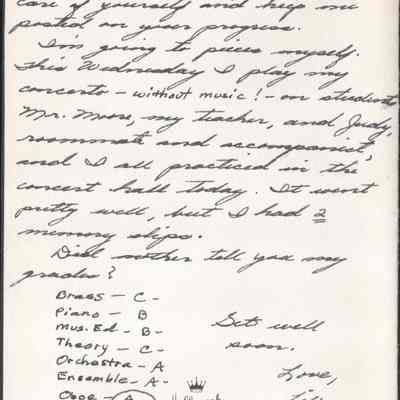 care of yourself and keep me
posted on your progress.
I'm going to pieces myself.
This Wednesday I play my
concerto - without music! - on students
Mr. Moore, my teacher, and Judy,
roommate and accompanist,
and I all practiced in the
concert hall today. It went
pretty well, but I had 2
memory slips.
Did mother tell you my
grades?
Brass - C-
Piano - B
Mus. Ed - B-
Theory - C-
Orchestra - A
Ensemble - A-
Oboe - A
Get well
soon.
Love,